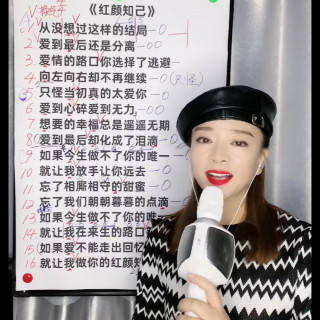 《红颜知己》
1 从没想过这样的结局
2 爱到最后还是分离
3 爱情的路口你选择了逃避
4 向左向右却不再继续
5 只怪当初真的太爱你
6 爱到心碎爱到无力
7 想要的幸福总是遥遥无期
8 爱到最后却化成了泪滴
9 如果今生做不了你的唯一
10 就让我放手让你远去
11 忘了相厮相守的甜蜜
12 忘了我们朝朝暮暮的点滴
13 如果今生做不了你的唯
14 就让我在来生的路口
15 如果爱不能走出回忆
16 就让我做你的红颜知己